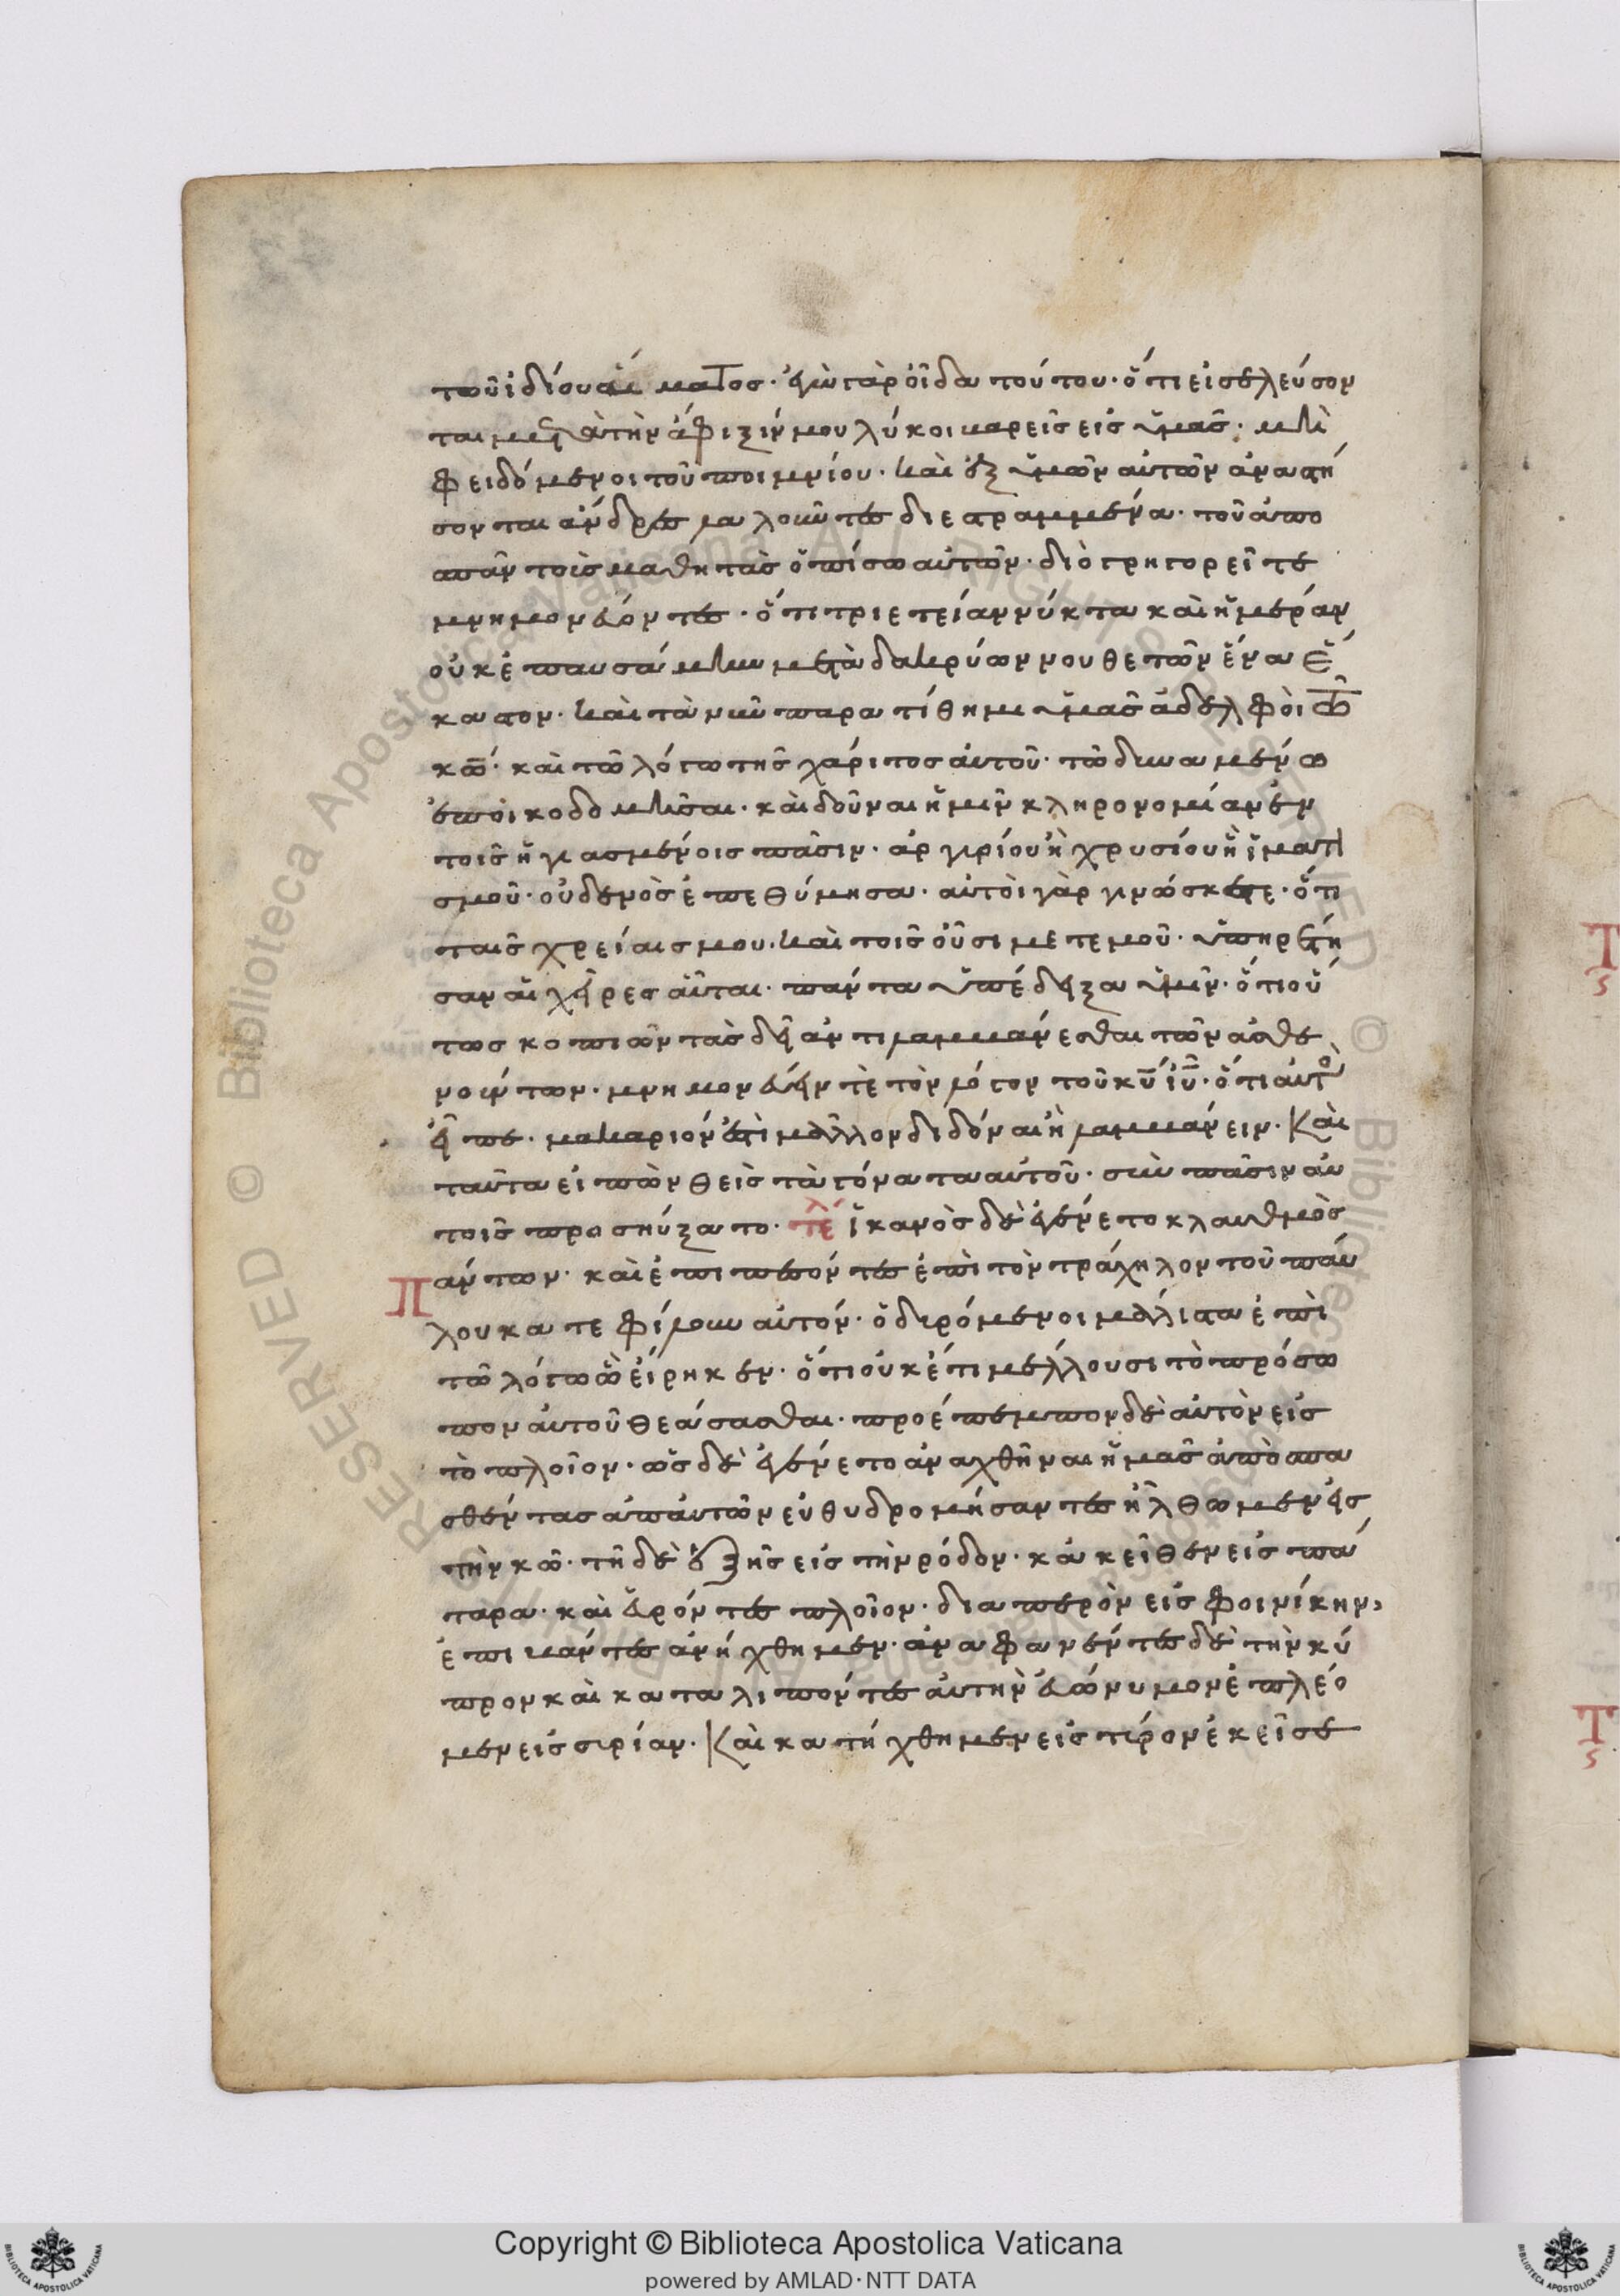 τοῦ ἰδίου αἵματος· ἐγὼ γὰρ οἶδα τούτου· ὅτι εἰσελεύσον
ται μετὰ τὴν ἄφιξίν μου λύκοι βαρεῖς εἰς ὑμᾶς· μὴ
φειδόμενοι τοῦ ποιμνίου· καὶ ἐξ ὑμῶν αὐτῶν ἀναστή
σονται ἄνδρες λαλοῦντες διεστραμμένα· τοῦ ἀπο
σπᾶν τοὺς μαθητὰς ὀπίσω αὐτῶν· διὸ γρηγορεῖτε
μνημονεύοντες· ὅτι τριετείαν νύκτα καὶ ἡμέραν
οὐκ ἐπαυσάμην μετὰ δακρύων νουθετῶν ἕνα ἕ
καστον· καὶ τὰ νῦν παρατίθημι ὑμᾶς ἀδελφοὶ τῶ
κῶ· καὶ τῶ λόγω τῆς χάριτος αὐτοῦ· τῶ δυναμένω
ἐποικοδομῆσαι· καὶ δοῦναι ἡμῖν κληρονομίαν ἐν
τοῖς ἡγιασμένοις πᾶσιν· ἀργυρίου ἢ χρυσίου ἢ ἱματι
σμοῦ· οὐδενὸς ἐπεθύμησα· αὐτοὶ γὰρ γινώσκετε· ὅτι
ταῖς χρείαις μου· καὶ τοῖς οὖσι μετ ἐμοῦ· ὑπηρετή
σαν αἱ χεῖρες αὗται· πάντα ὑπέδειξα ὑμῖν· ὅτι οὕ
τως κοπιῶντας δεῖ ἀντιλαμβάνεσθαι τῶν ἀσθε
νούντων· μνημονεύειν τὲ τὸν λόγον τοῦ κυ ιυ· ὅτι αὐτὸς
εἶπε· μακαριόν ἐστὶ μᾶλλον διδόναι ἢ λαμβάνειν· Καὶ
ταῦτα εἰπὼν θεὶς τὰ γόνατα αὐτοῦ· σὺν πᾶσιν αὐ
τοῖς προσηύξατο· τε̇λ ἱκανὸς δὲ ἐγένετο κλαυθμὸς
Πάντων· καὶ ἐπιπεσόντες ἐπὶ τὸν τράχηλον τοῦ παύ
λου κατεφίλουν αὐτόν· ὀδυρόμενοι μάλιστα ἐπὶ
τῶ λόγω ὧ εἰρηκεν· ὅτι οὐκέτι μέλλουσι τὸ πρόσω
πον αὐτοῦ θεάσασθαι· προέπεμπον δὲ αὐτὸν εἰς
τὸ πλοῖον· ὡς δὲ ἐγένετο ἀναχθῆναι ἡμᾶς ἀποσπα
σθέντας ἀπ αὐτῶν εὐθυδρομήσαντες ἤλθωμεν εἰς
τὴν κῶ· τῆ δὲ ἑξῆς εἰς τὴν ρόδον· κἀκεῖθεν εἰς πά
ταρα· καὶ εὑρόντες πλοῖον· διαπερὸν εἰς φοινίκην,
ἐπιβάντες ἀνήχθημεν· ἀναφανέντες δὲ τὴν κύ
προν καὶ καταλιπόντες αὐτὴν εὐώνυμον ἐπλέο
μεν εἰς συρίαν· Καὶ κατήχθημεν εἰς τύρον ἐκεῖσε
Copyright © Biblioteca Apostolica Vaticana
powered by AMLAD·NTT DATA